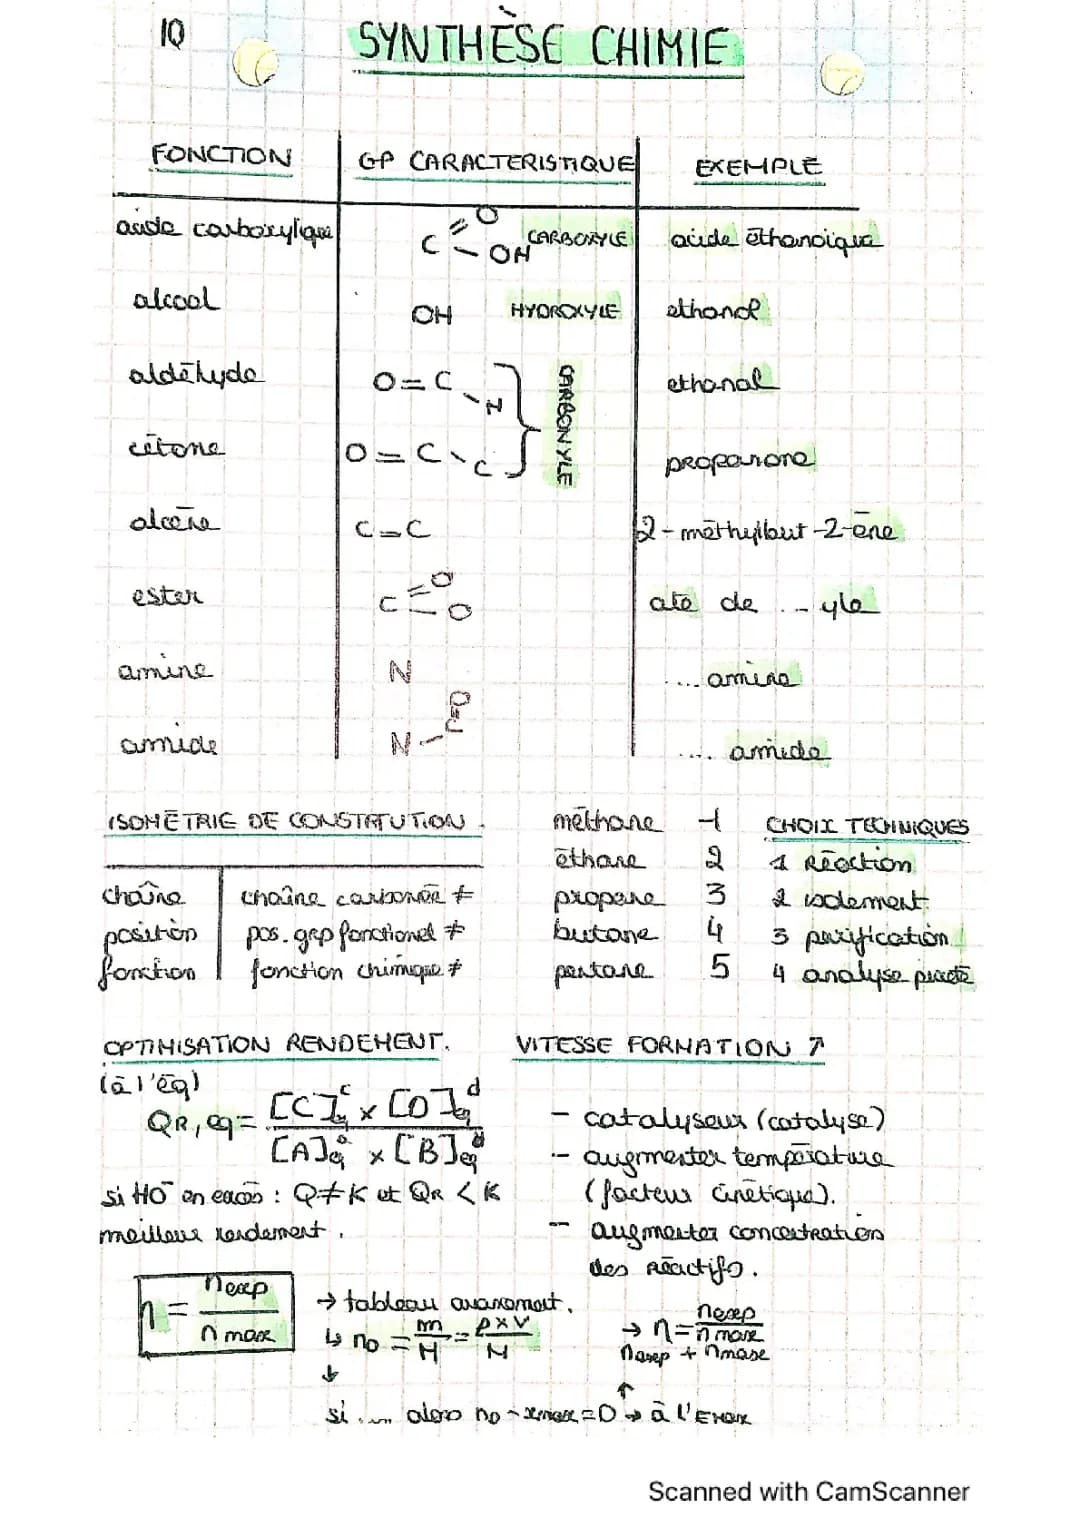 10
SYNTHÈSE CHIMIE
FONCTION | GP CARACTERISTIQUE | EXEMPLE
acide carboxylique | C =O - OH CARBOXYLE | acide éthanoïque
alcool | OH HYDROXYLE | ethanol
aldéhyde | O=C-H CARBONYLE | ethanal
cétone | O=C-C | propanone
alcène | C=C | 2-méthylbut-2-ène
ester | C =O - O | ate de ... yle
amine | N | ... amine
amide | N-C=O | ... amide
ISOMÉTRIE DE CONSTITUTION.
chaîne | chaîne carbonée ≠
position | pos. grp fonctionel ≠
fonction | fonction chimique ≠
méthane 1
éthane 2
propane 3
butane 4
pentane 5
CHOIX TECHNIQUES
1 Réaction
2 isolement
3 purification
4 analyse pureté
OPTIMISATION RENDEMENT.
(à l'éq)
QR,eq = [C]eq^c x [D]eq^d / [A]eq^a x [B]eq^b
si HO⁻ en excès : Q≠K et QR < K
meilleur rendement.
η = nexp / n max
VITESSE FORMATION ↗
- catalyseur (catalyse)
- augmenter température
(facteur cinétique).
- augmenter concentration
des réactifs.
→ tableau avancement.
↳ n0 = m/M = ρxV/M
↓
si ... alors n0 - xmax = 0 → à l'Emax
→ η = nexp / n max
nexp + nmax
↑
Scanned with CamScanner